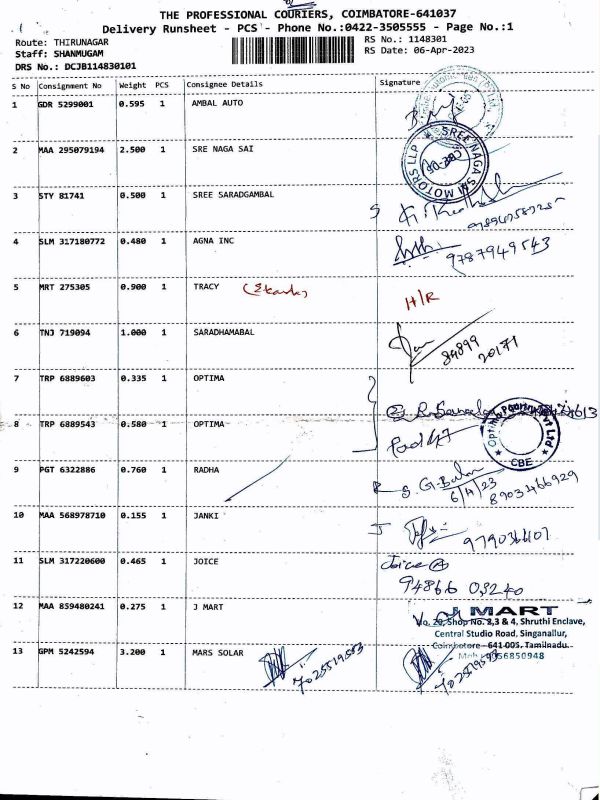 THE PROFESSIONAL COURIERS, COIMBATORE-641037
Delivery Runsheet - PCS - Phone No.:0422-3505555 - Page No.:1
Route: THIRUNAGAR
RS No.: 1148301
Staff: SHANMUGAM
RS Date: 06-Apr-2023
DRS No.: DCJB114830101
S No Consignment No Weight PCS Consignee Details Signature
1 GDR 5299001 0.595 1 AMBAL AUTO
2 MAA 295079194 2.500 1 SRE NAGA SAI
SREE NAGA SAI MOTORS LLP
3 STY 81741 0.500 1 SREE SARADGAMBAL
4 SLM 317180772 0.480 1 AGNA INC
9787949543
5 MRT 275305 0.900 1 TRACY H/R
6 TNJ 719094 1.000 1 SARADHAMABAL
89899 20171
7 TRP 6889603 0.335 1 OPTIMA
8 TRP 6889543 0.580 1 OPTIMA
CBE
9 PGT 6322886 0.760 1 RADHA
6/4/23 8903466929
10 MAA 568978710 0.155 1 JANKI J
11 SLM 317220600 0.465 1 JOICE Joice
94866 03240
12 MAA 859480241 0.275 1 J MART
J MART
No. 29, Shop No. 2,3 & 4, Shruthi Enclave,
Central Studio Road, Singanallur,
Coimbatore - 641 005. Tamilnadu.
13 GPM 5242594 3.200 1 MARS SOLAR 7025519553